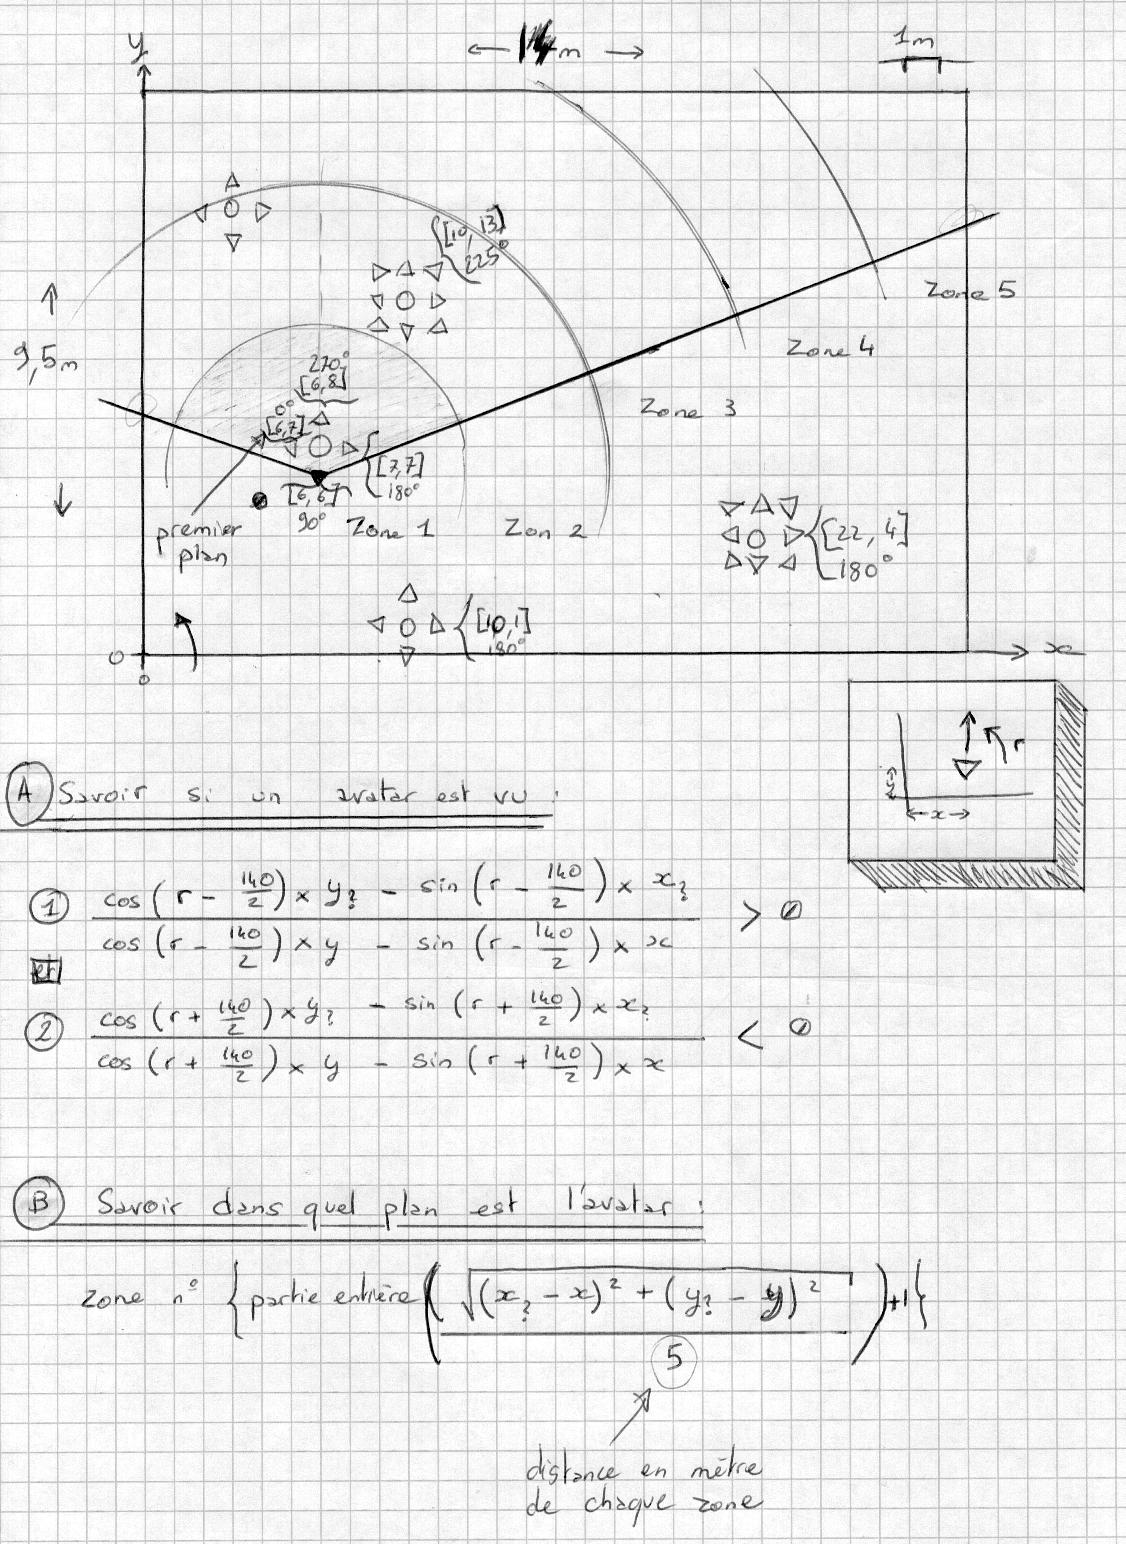 y
← 14m →
1m
[10, 13]
225°
Zone 5
9,5m
Zone 4
270°
[6,8]
Zone 3
0°
[6,7]
[7,7]
180°
[6,6]
90°
premier
plan
Zone 1
Zon 2
[22, 4]
180°
[10,1]
180°
0
x
0
r
x
A Savoir si un avatar est vu :
1 cos (r - 140/2) × y? - sin (r - 140/2) × x?
cos (r - 140/2) × y - sin (r - 140/2) × x
> 0
et
2 cos (r + 140/2) × y? - sin (r + 140/2) × x?
cos (r + 140/2) × y - sin (r + 140/2) × x
< 0
B Savoir dans quel plan est l'avatar :
zone n° { partie entière ( √(x? - x)² + (y? - y)² ) +1 {
5
distance en mètre
de chaque zone